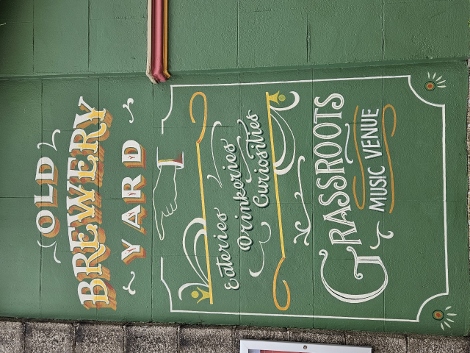 OLD
BREWERY
YARD
Eateries
Drinkeries
Curiosities
GRASSROOTS
MUSIC VENUE